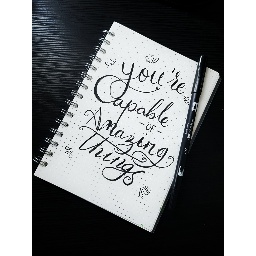 you're
Capable
of
Amazing
things